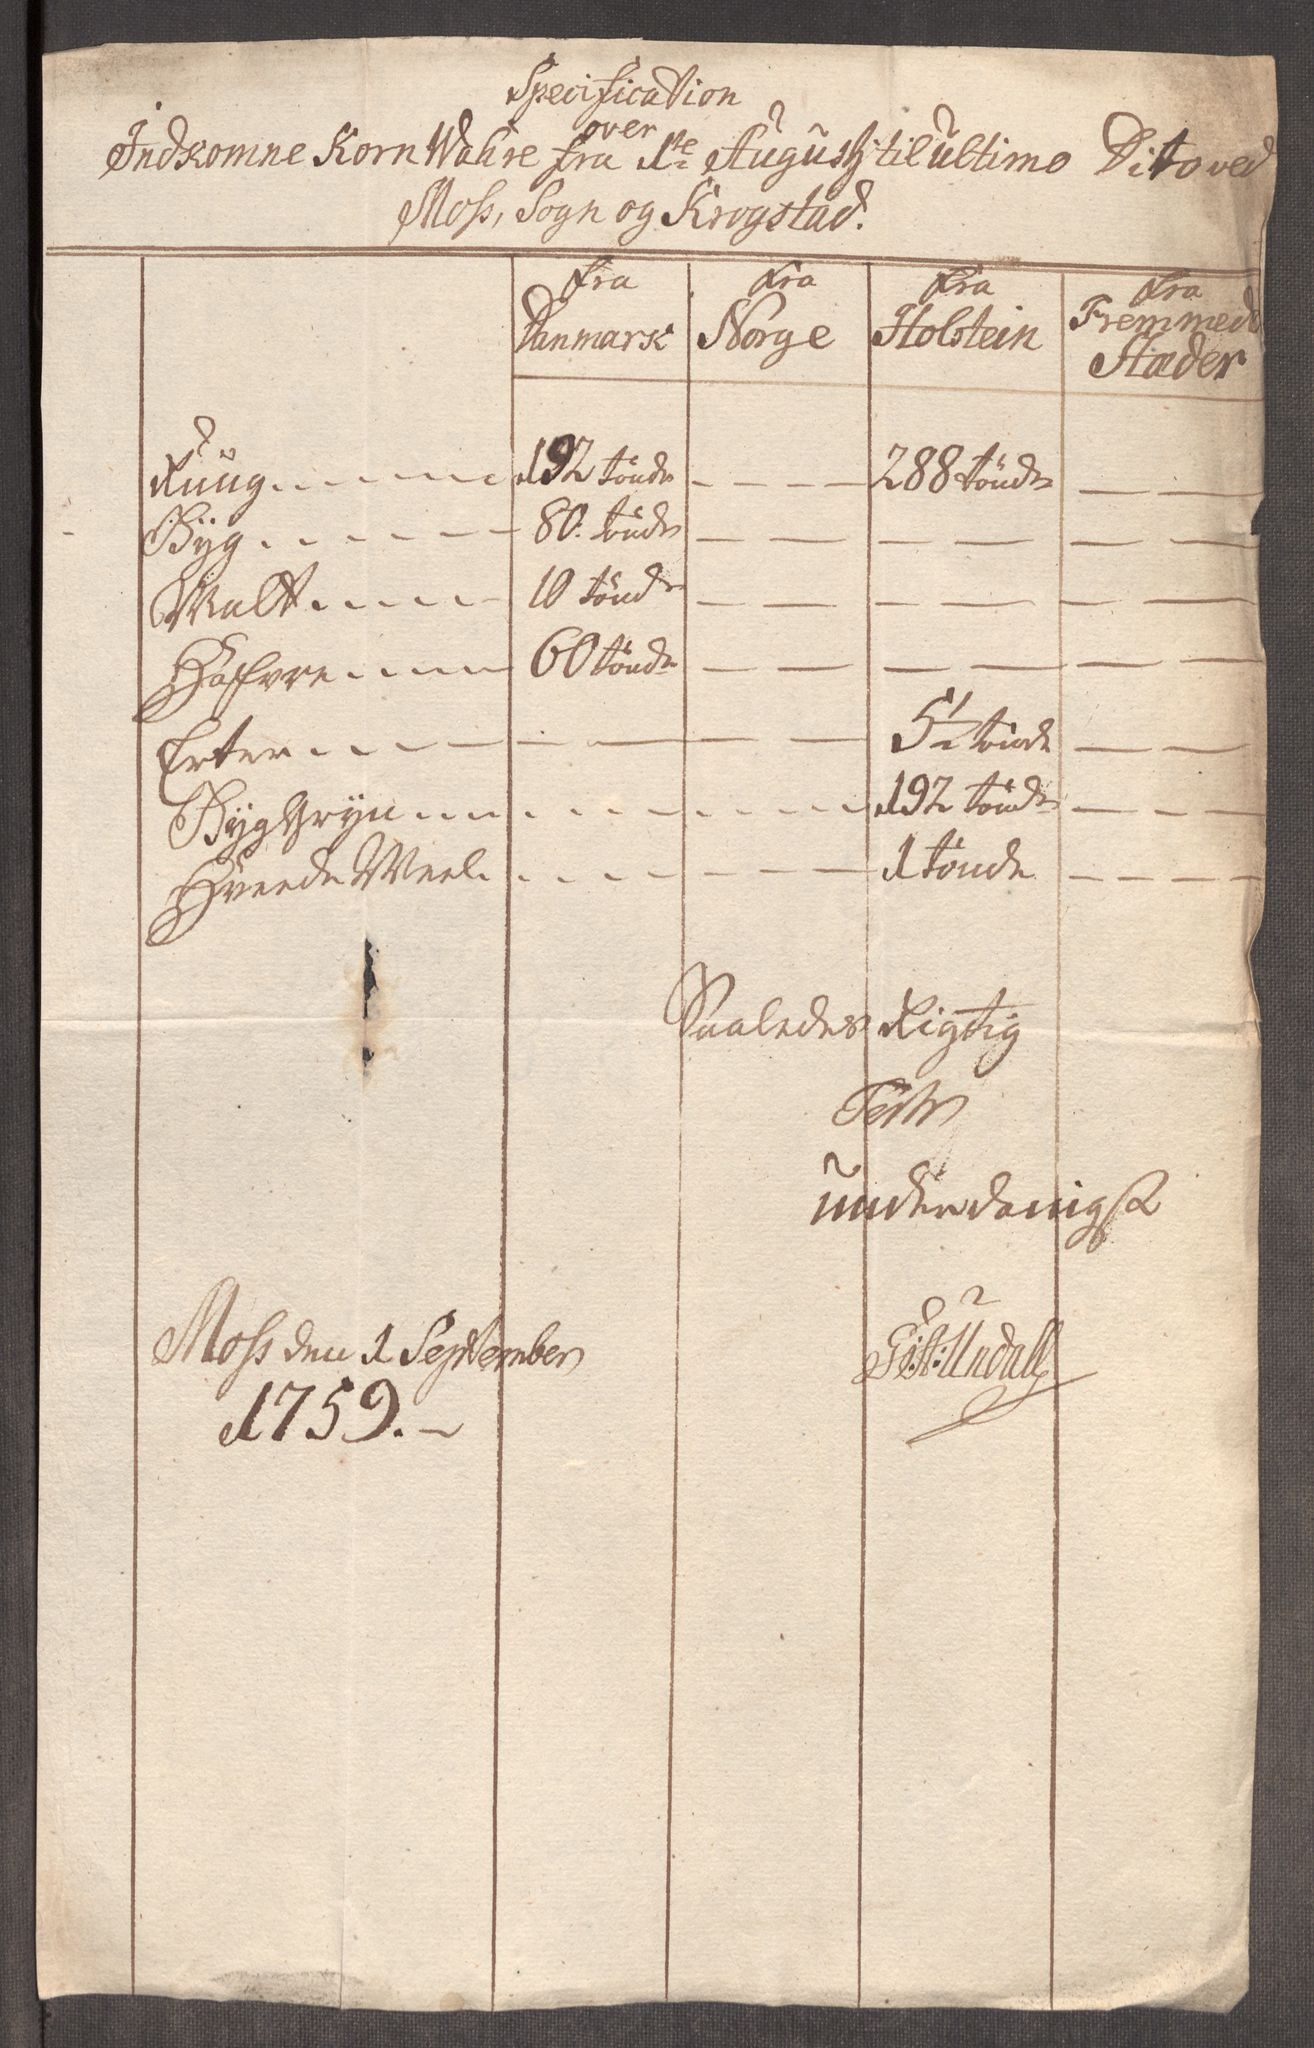 Specification
over
Indkomne Korn Wahre fra 1ste Augustj til ultimo Dito ved
Moss, Sogn og Krogstad.
fra Danmark fra Norge fra Holstein fra Fremmede Stæder
Rüug 192 tönder 288 tönder
Byg 80. tönder
Malt 10 tönder
Hafvre 60 tönder
Erter 5½ tönde
Byg Gryn 192 tönder
Hveede Meel 1 tönde
Saaledes Rigtig
underdanigst
Moss den 1 September
1759.